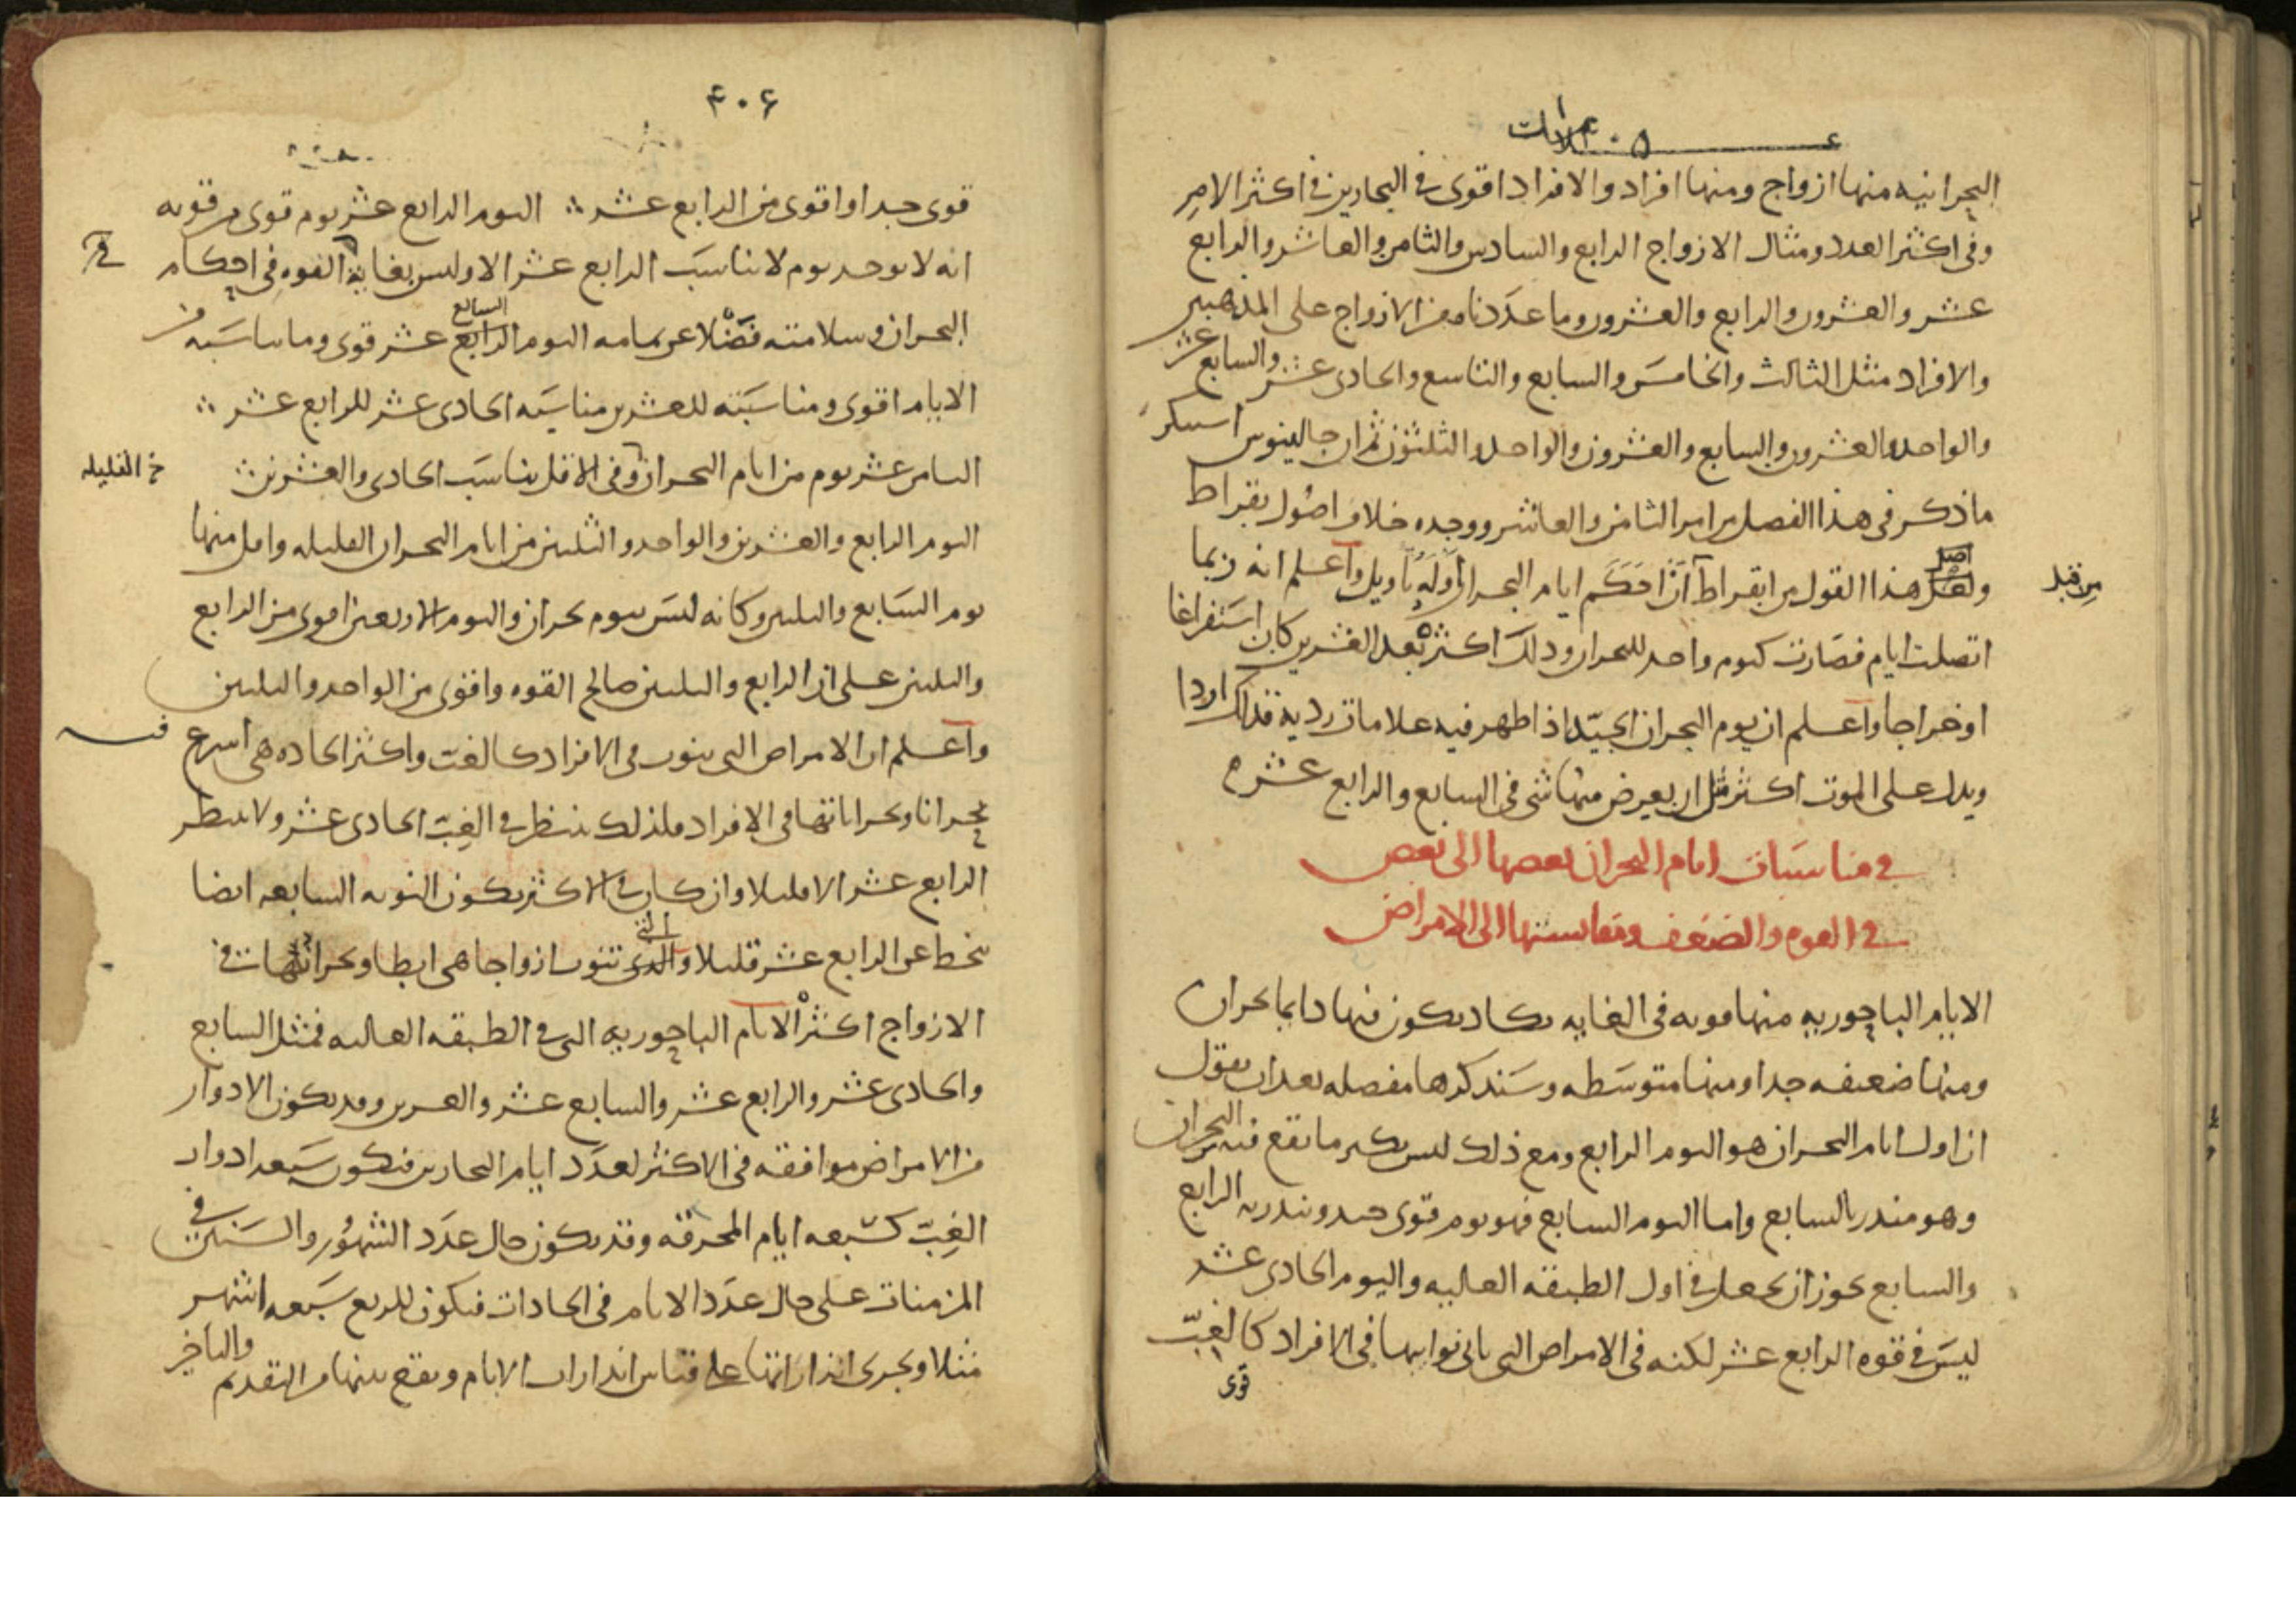 ٤٠٥
البحرانيه منها ازواج ومنها افراد والافراد اقوى في البحارين في اكثر الامر
وفي اكثر العدد ومثال الازواج الرابع والسادس والثامن والعاشر والرابع
عشر والعشرون والرابع والعشرون وما عددنا من الازواج على المذهبين
والافراد مثل الثالث والخامس والسابع والتاسع والحادى عشر والسابع عشر
والواحد والعشرون والسابع والعشرون والواحد والثلثون ثم ان جالينوس استنكر
ما ذكر في هذا الفصل من امر الثامن والعاشر ووجده خلاف اصول بقراط
ولعل هذا القول من ابقراط احكم ايام البحران اوله تاويل واعلم انه ربما
من قبل
اتصلت ايام فصارت كيوم واحد للبحران وذلك اكثره بعد العشرين كان استفراغا
او خراجا واعلم ان يوم البحران الجيد اذا ظهر فيه علامات رديه فذلك اردا
ويدل على الموت اكثر مثل ان يعرض منها شى في السابع والرابع عشر
في مناسبات ايام البحران بعضها الى بعض
في القوه والضعف ومقايستها الى الامراض
الايام الباحوريه منها قويه في الغايه يكاد يكون فيها دايما بحران
ومنها ضعيفه جدا ومنها متوسطه وسنذكرها مفصله بعد ان نقول
ان اول ايام البحران هو اليوم الرابع ومع ذلك ليس بكثير ما يقع فيه البحران
وهو منذر بالسابع واما اليوم السابع فهو يوم قوى جيد وينذر به الرابع
والسابع يجوز ان يجعل في اول الطبقه العاليه واليوم الحادى عشر
ليس في قوه الرابع عشر لكنه في الامراض التى تاتى نوايبها في الافراد كالغب
قوى
٤٠٦
قوى جدا واقوى من الرابع عشر اليوم الرابع عشر يوم قوى من قوته
انه لا يوجد يوم لا يناسب الرابع عشر الا وليس بغايه القوه في احكام
البحران وسلامته فضلا عن تمامه اليوم السابع عشر قوى وما يناسبه من
الايام اقوى ومناسبته للعشرين مناسبه الحادى عشر للرابع عشر
الثامن عشر يوم من ايام البحران وفي الاقل يناسب الحادى والعشرين
خ القليله
اليوم الرابع والعشرين والواحد والثلثين من ايام البحران القليله واقل منها
يوم السابع والثلثين وكانه ليس بيوم بحران واليوم الاربعين اقوى من الرابع
والثلثين على ان الرابع والثلثين صالح القوه واقوى من الواحد والثلثين
واعلم ان الامراض التى تنوب في الافراد كالغب واكثر الحاده هى اسرع
بحرانا وبحراناتها في الافراد فلذلك ننتظر في الغب الحادى عشر ولا ننتظر
الرابع عشر الا قليلا وان كان في الاكثر يكون النوبه السابعه ايضا
ينحط عن الرابع عشر قليلا والتى تنوب ازواجا هى ابطا وبحراناتها في
الازواج اكثر الايام الباحوريه التى في الطبقه العاليه فمثل السابع
والحادى عشر والرابع عشر والسابع عشر والعشرين وقد يكون الادوار
من الامراض موافقه في الاكثر لعدد ايام البحارين فيكون سبعه ادوار
الغب كسبعه ايام المحرقه وقد يكون حال عدد الشهور والسنين في
المزمنات على حال عدد الايام في الحادات فيكون للربع سبعه اشهر
مثلا ويجرى انذاراتها على قياس انذارات الايام ويقع بينها من التقدم والتاخر